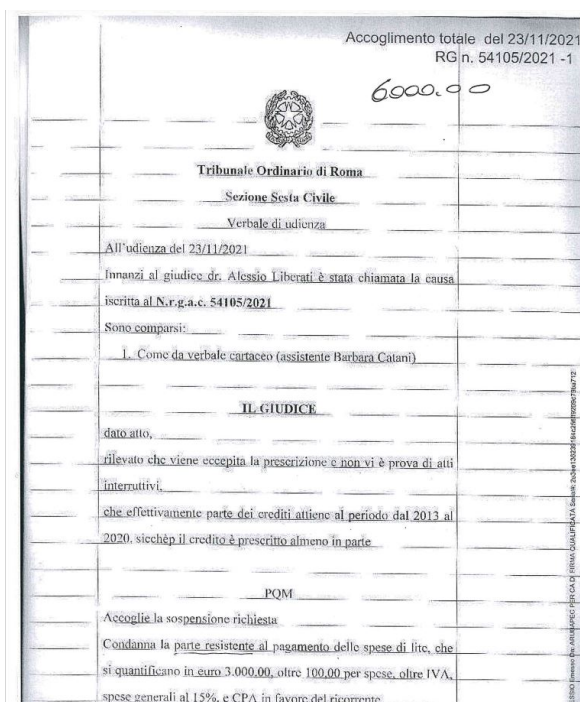 Accoglimento totale del 23/11/2021
RG n. 54105/2021 -1
6000.00
Tribunale Ordinario di Roma
Sezione Sesta Civile
Verbale di udienza
All'udienza del 23/11/2021
Innanzi al giudice dr. Alessio Liberati è stata chiamata la causa
iscritta al N.r.g.a.c. 54105/2021
Sono comparsi:
1. Come da verbale cartaceo (assistente Barbara Catani)
IL GIUDICE
dato atto,
rilevato che viene eccepita la prescrizione e non vi è prova di atti
interruttivi,
che effettivamente parte dei crediti attiene al periodo dal 2013 al
2020, sicchèp il credito è prescritto almeno in parte
PQM
Accoglie la sospensione richiesta
Condanna la parte resistente al pagamento delle spese di lite, che
si quantificano in euro 3.000,00, oltre 100,00 per spese, oltre IVA,
spese generali al 15%, e CPA in favore del ricorrente
Emesso Da: ARUBAPEC PER CA DI FIRMA QUALIFICATA